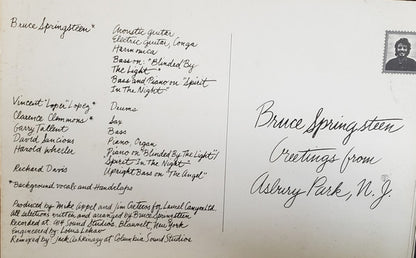 Bruce Springsteen*
Acoustic guitar
Electric guitar, Conga
Harmonica
Bass on "Blinded By
The Light"
Bass and Piano on "Spirit
In The Night"
Vincent "Loper" Lopez*
Drums
Clarence Clemmons*
Sax
Garry Tallent
Bass
David Sancious
Piano, Organ
Harold Wheeler
Piano on "Blinded By The Light"/
Spirit In The Night
Richard Davis
Upright Bass on "The Angel"
*Background vocals and Handclaps
Produced by Mike Appel and Jim Cretecos for Laurel Canyon Ltd.
All selections written and arranged by Bruce Springsteen
Recorded at 914 Sound Studios, Blauvelt, New York
Engineered by Louis Lahav
Remixed by Jack Ashkinazy at Columbia Sound Studios
Bruce Springsteen
Greetings from
Asbury Park, N.J.